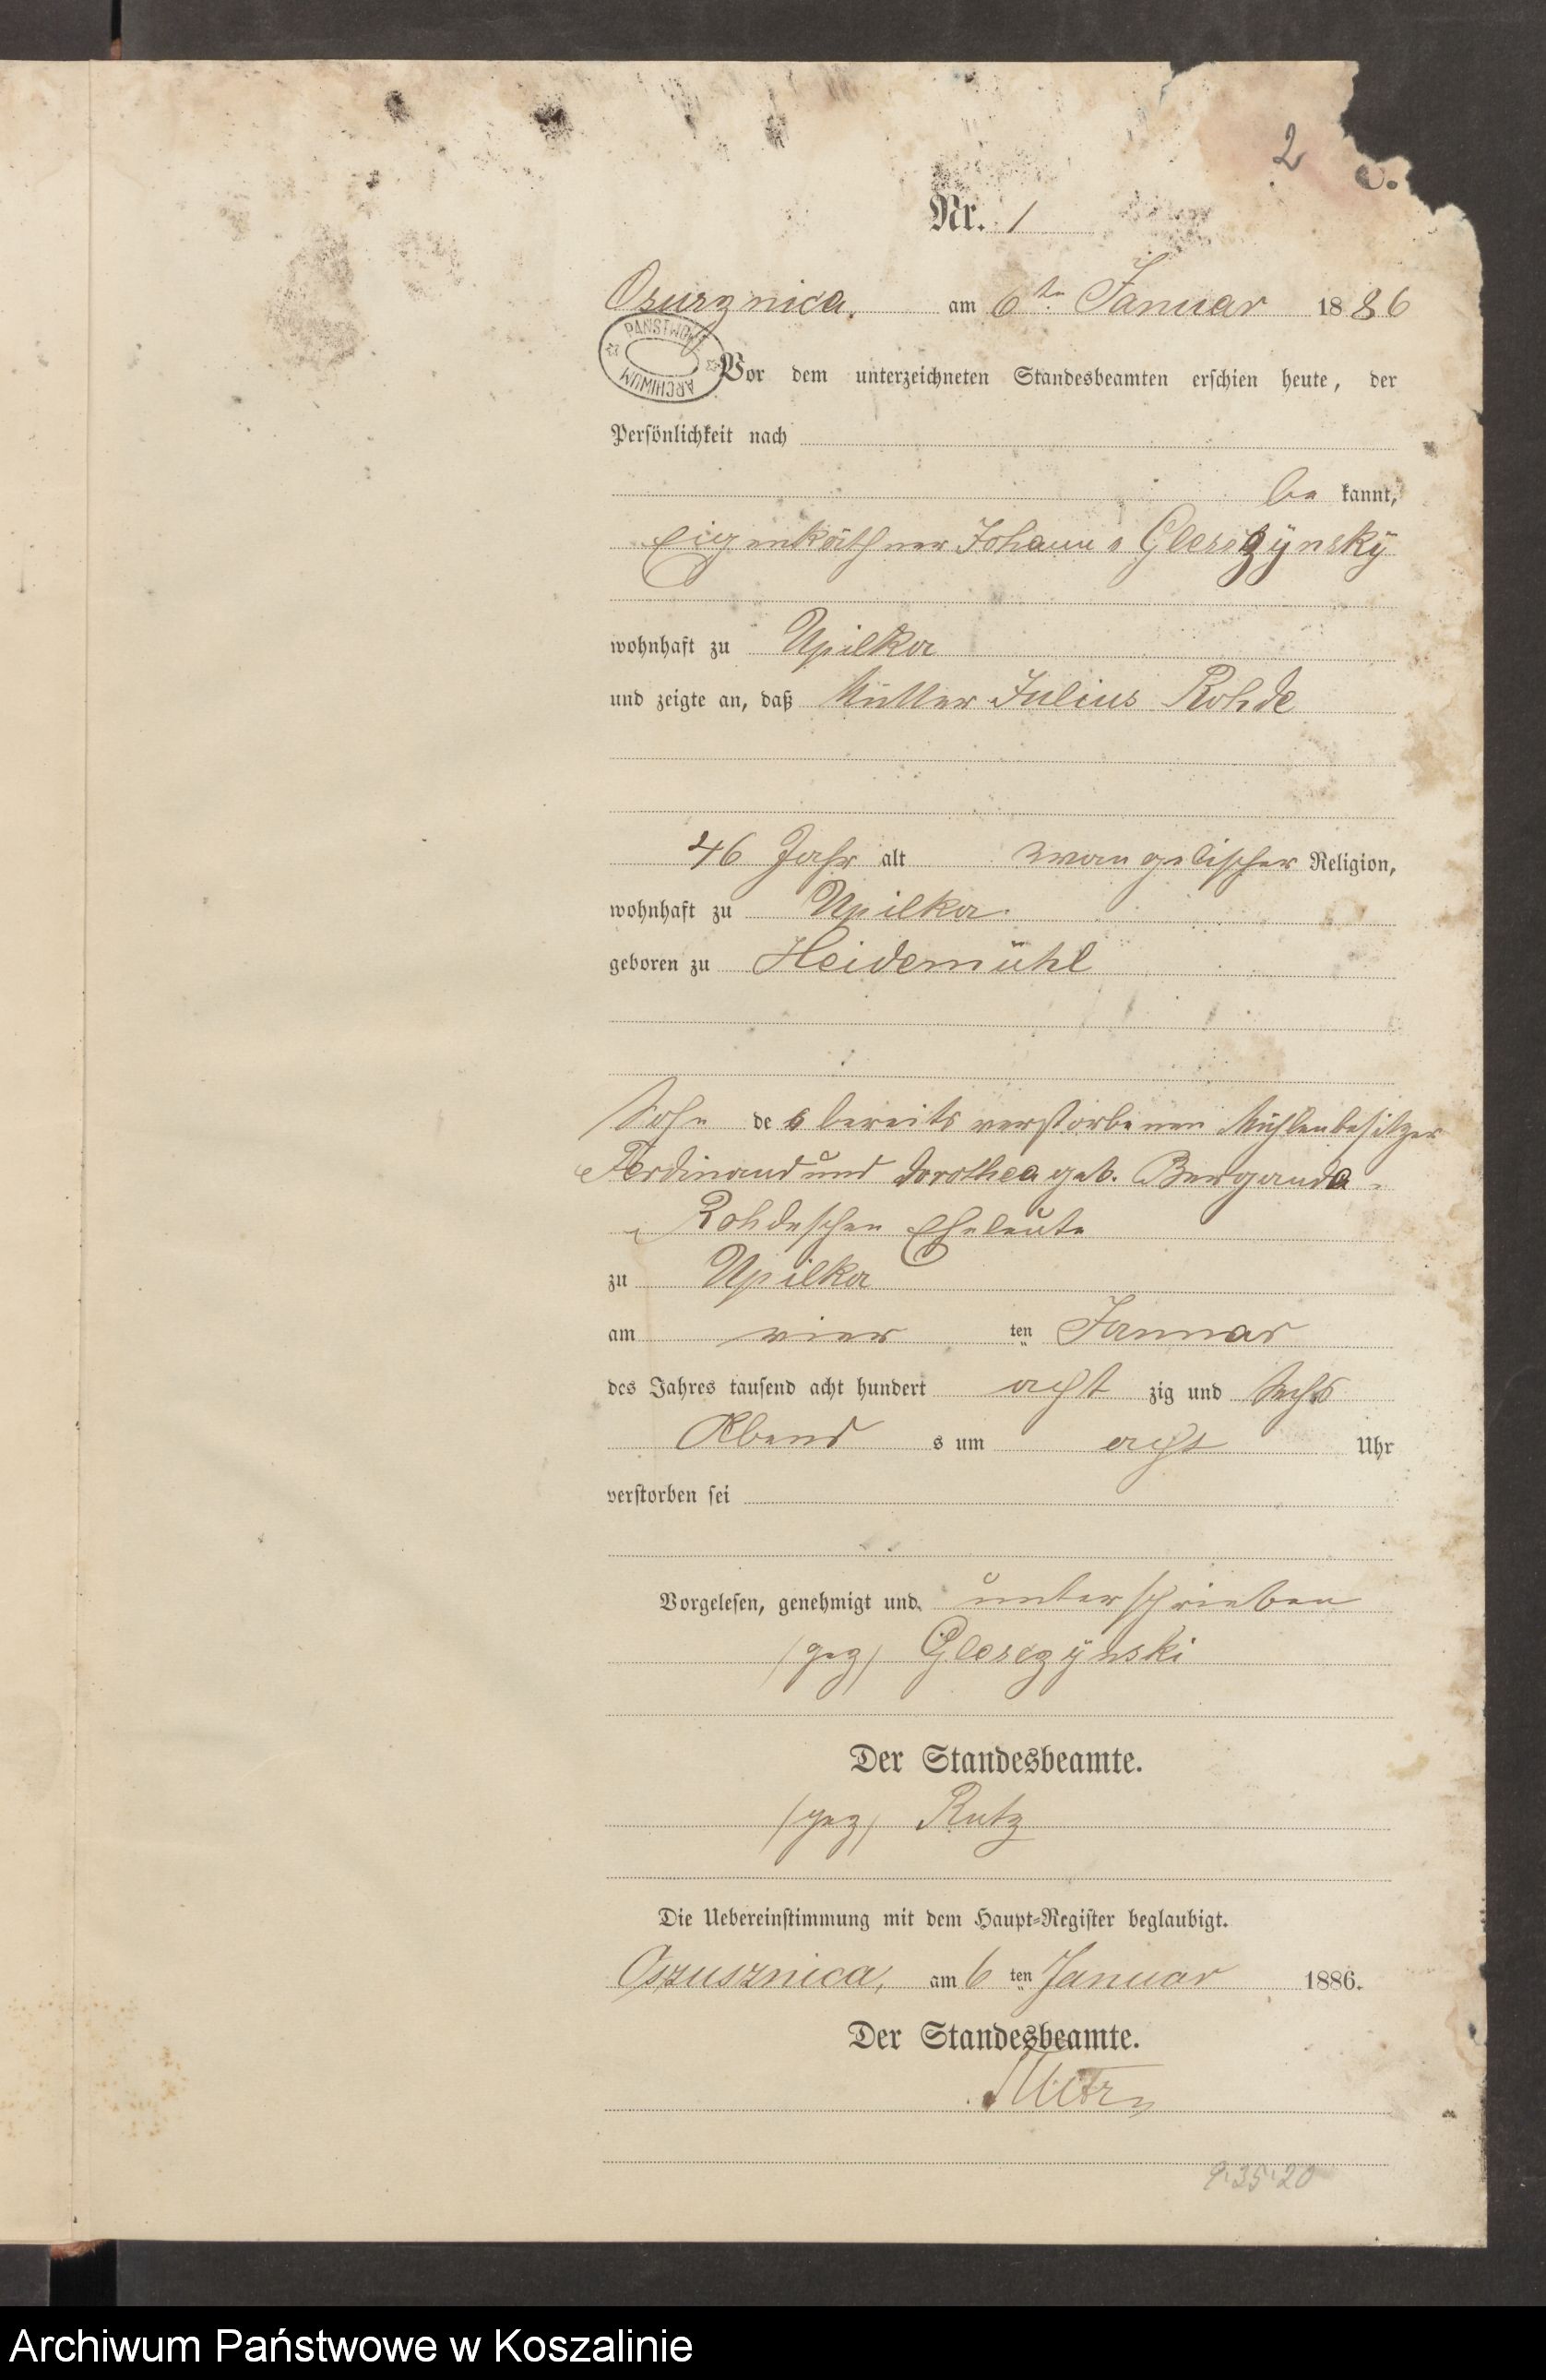 2
C.
Nr. 1
Osusznica, am 6ten Januar 1886
PAŃSTWOWE ARCHIWUM
Vor dem unterzeichneten Standesbeamten erschien heute, der
Persönlichkeit nach
be kannt,
Eigenkäthner Johann Glesczÿnskÿ
wohnhaft zu Upilka
und zeigte an, daß Müller Julius Rohde
46 Jahr alt evangelischer Religion,
wohnhaft zu Upilka.
geboren zu Heidemühl
Sohn des bereits verstorbenen Mühlenbesitzer
Ferdinand und Dorothea geb. Berganda-
Rohdeschen Eheleute
zu Upilka
am vier ten Januar
des Jahres tausend acht hundert acht zig und sechs
Abend s um acht Uhr
verstorben sei
Vorgelesen, genehmigt und unterschrieben
(gez) Glesczÿnski
Der Standesbeamte.
(gez) Rutz
Die Uebereinstimmung mit dem Haupt-Register beglaubigt.
Osusznica, am 6 ten Januar 1886.
Der Standesbeamte.
9.35.20
Archiwum Państwowe w Koszalinie